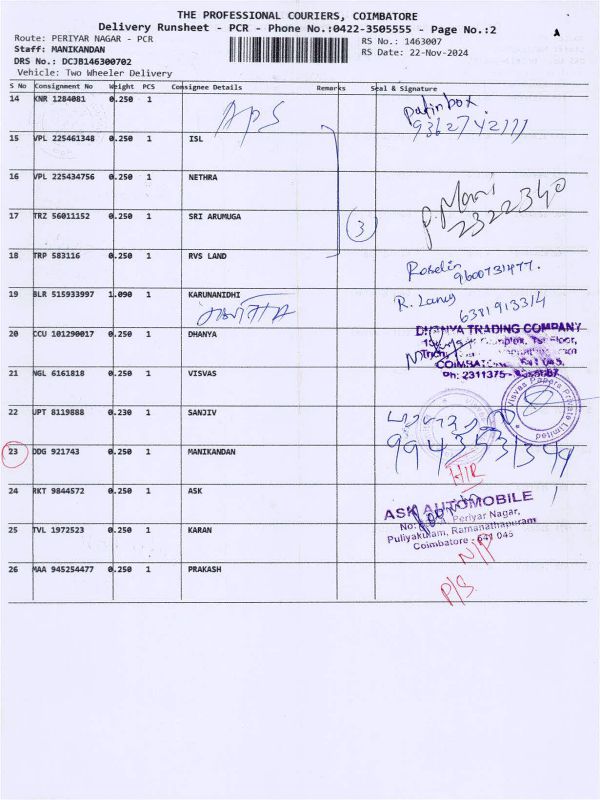 THE PROFESSIONAL COURIERS, COIMBATORE
Delivery Runsheet - PCR - Phone No.:0422-3505555 - Page No.:2
A
Route: PERIYAR NAGAR - PCR
RS No.: 1463007
Staff: MANIKANDAN
RS Date: 22-Nov-2024
DRS No.: DCJB146300702
Vehicle: Two Wheeler Delivery
S No Consignment No Weight PCS Consignee Details Remarks Seal & Signature
14 KNR 1284081 0.250 1
APS
9362742777
15 VPL 225461348 0.250 1 ISL
16 VPL 225434756 0.250 1 NETHRA
P. Mani
2322340
17 TRZ 56011152 0.250 1 SRI ARUMUGA
3
18 TRP 583116 0.250 1 RVS LAND
Roselin
9600731477.
19 BLR 515933997 1.090 1 KARUNANIDHI
R. 
6381913314
20 CCU 101290017 0.250 1 DHANYA
DHANYA TRADING COMPANY
COIMBATORE
Ph: 2311375
21 NGL 6161818 0.250 1 VISVAS
Visvas Papers Private Limited
22 JPT 8119888 0.230 1 SANJIV
23 DDG 921743 0.250 1 MANIKANDAN
H/R
24 RKT 9844572 0.250 1 ASK
ASK AUTOMOBILE
Periyar Nagar,
Puliyakulam, Ramanathapuram
Coimbatore - 641 045
25 TVL 1972523 0.250 1 KARAN
N/P
26 MAA 945254477 0.250 1 PRAKASH
P/S